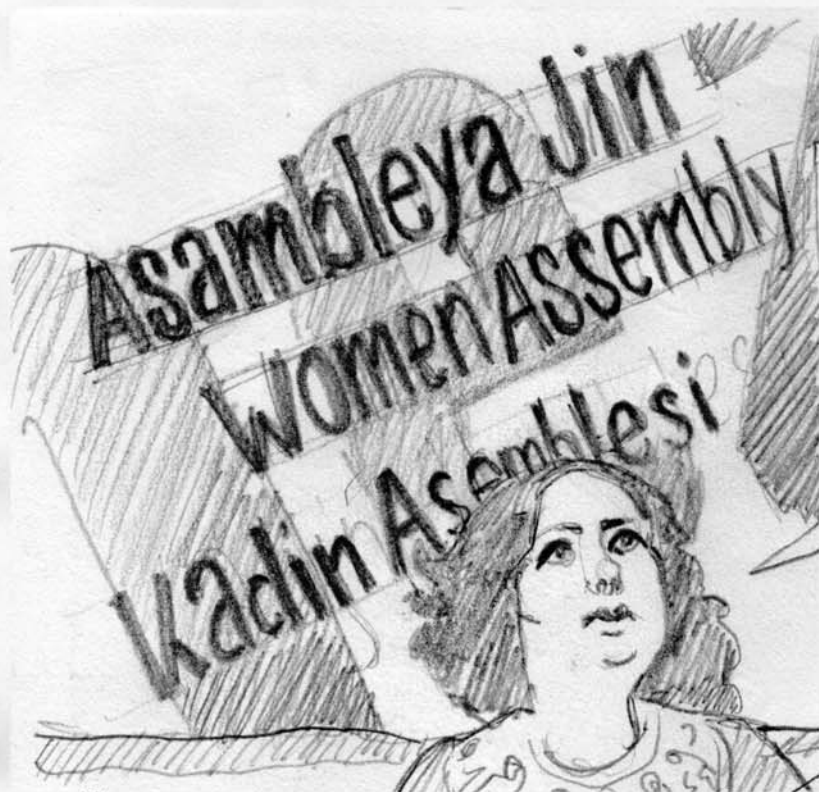 Asambleya Jin
Women Assembly
Kadin Asemblesi